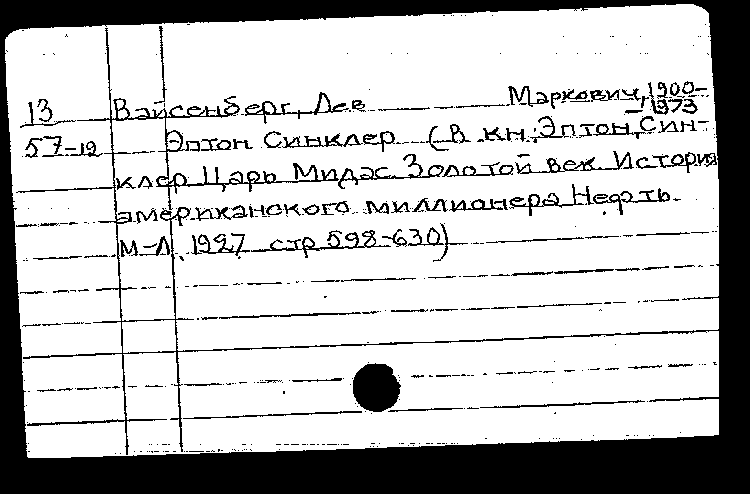 13 Вайсенберг, Лев Маркович, 1900-
-1973
57-12 Эптон Синклер (В кн: Эптон, Син-
клер Царь Мидас Золотой век История
американского миллионера Нефть.
М-Л, 1927 стр 598-630)